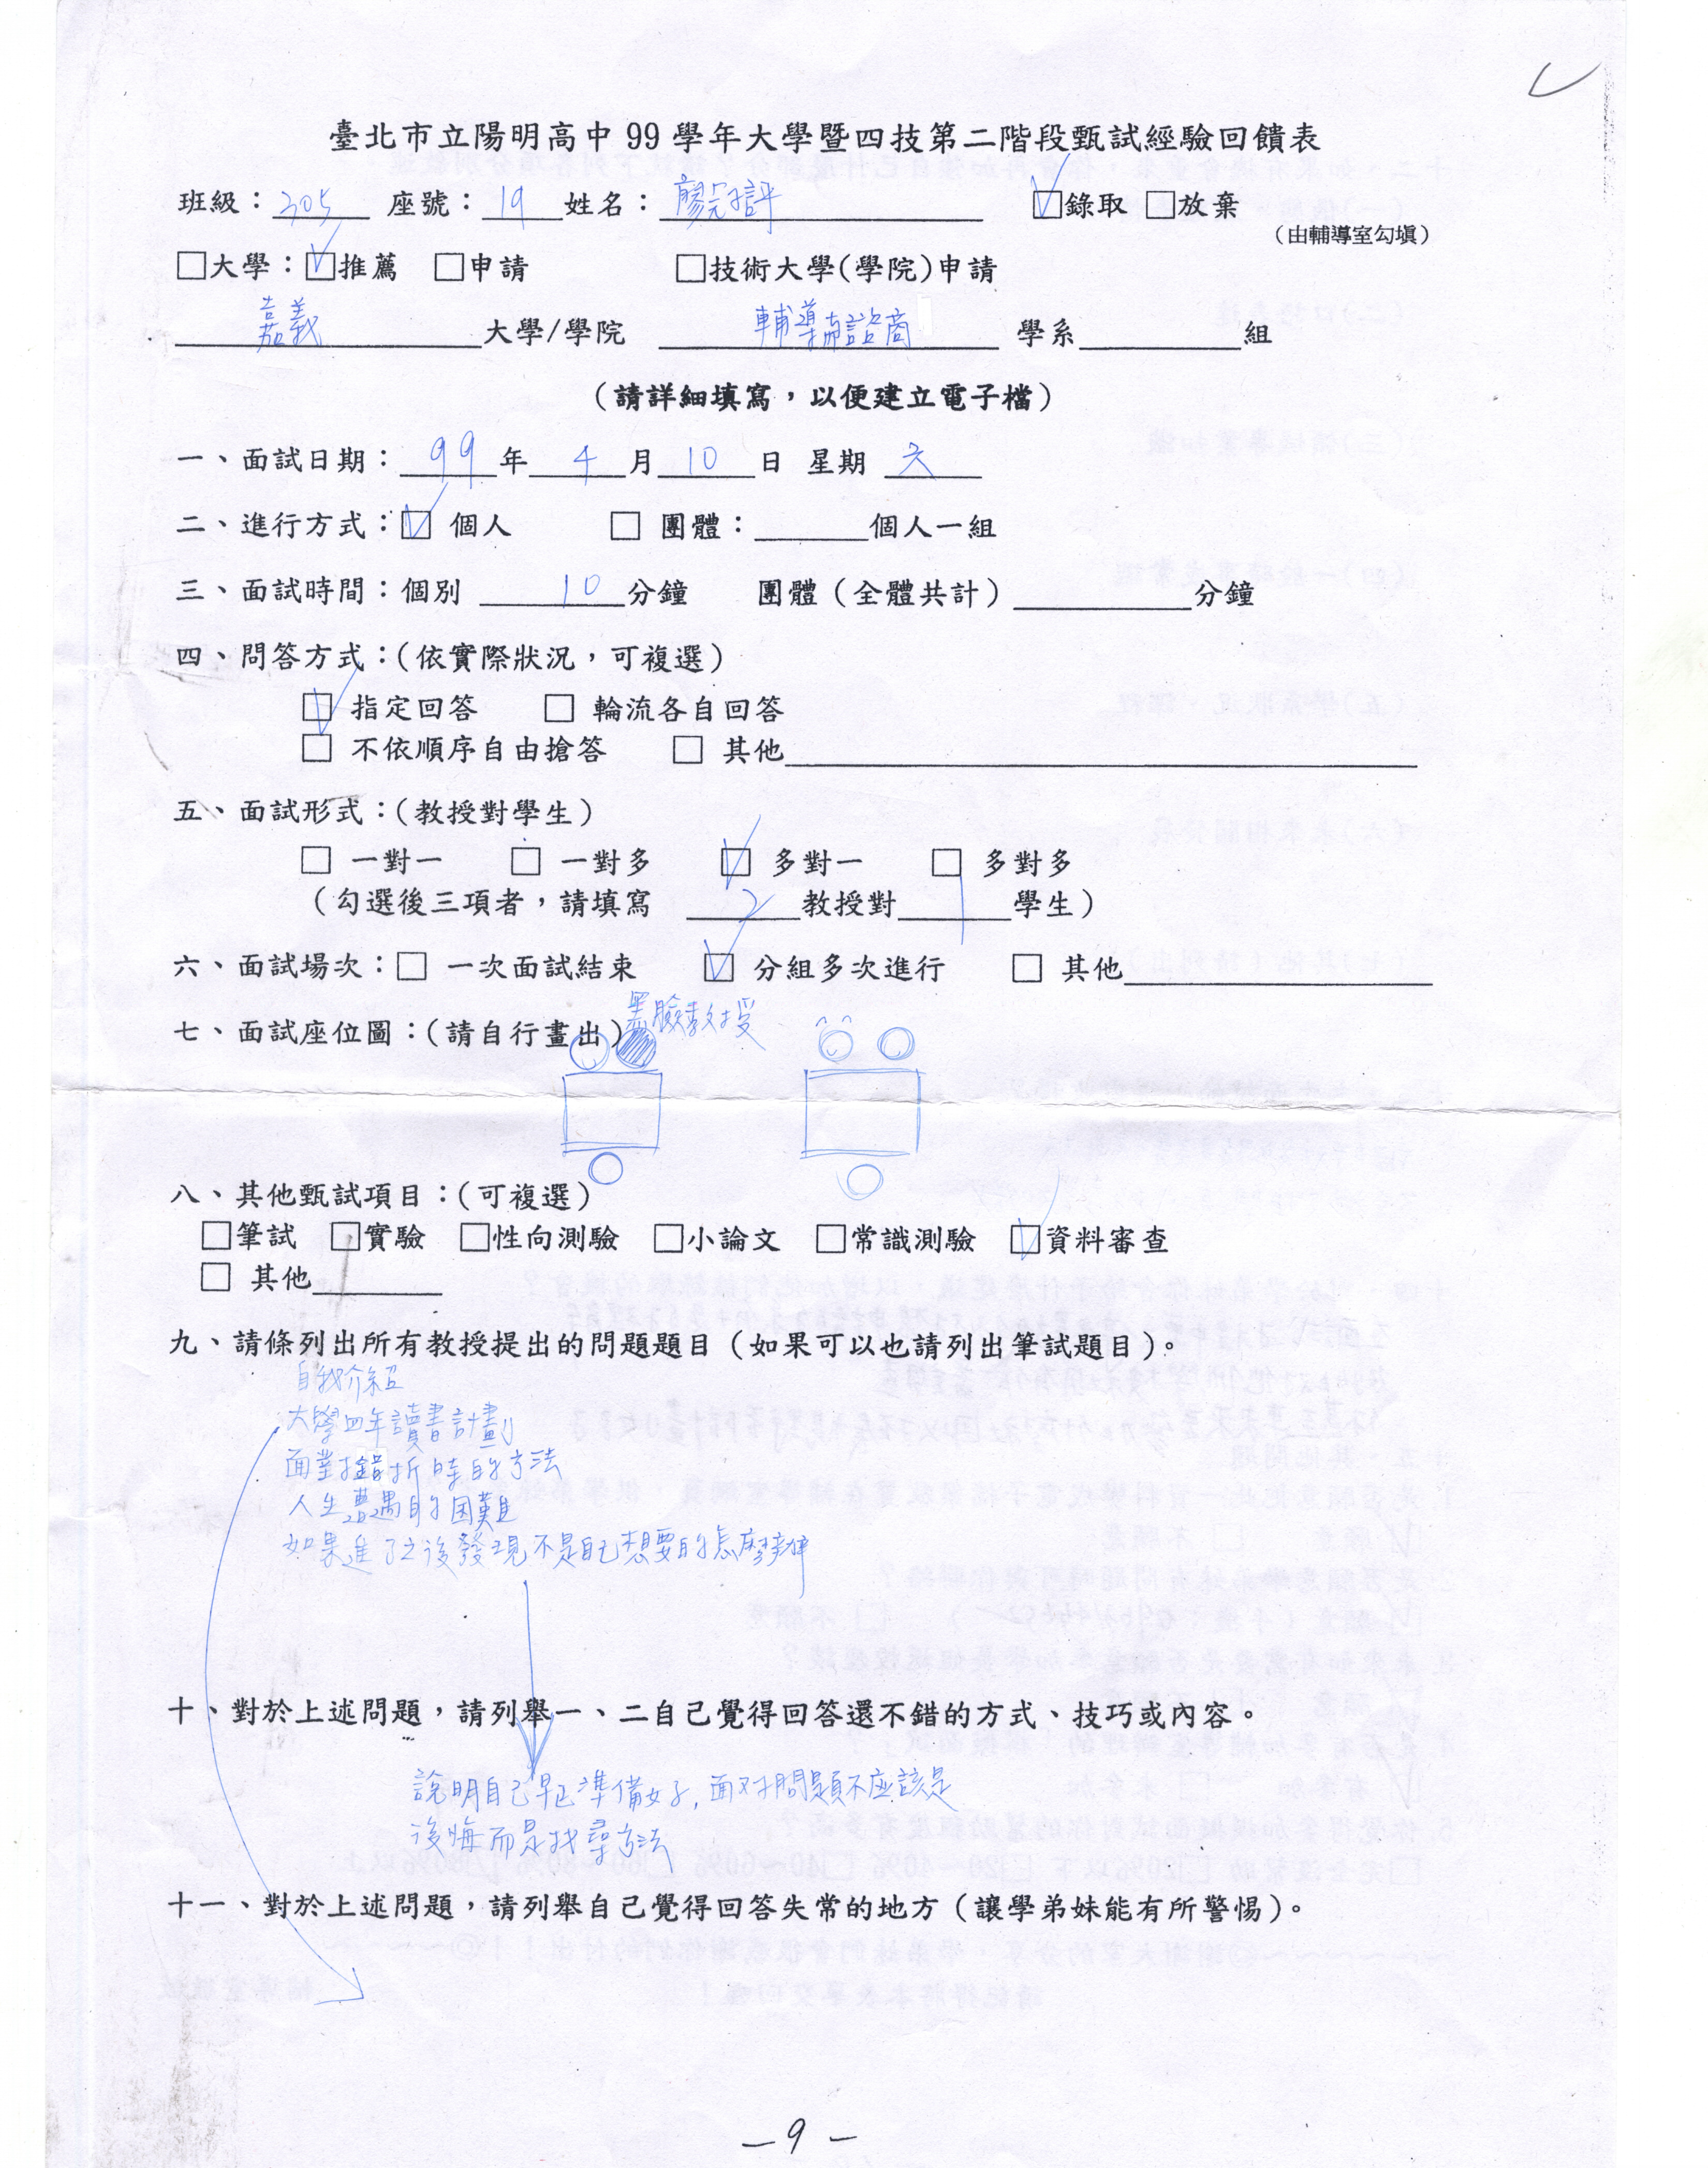 臺北市立陽明高中 99 學年大學暨四技第二階段甄試經驗回饋表
班級：305 座號：19 姓名：廖 評 ☑錄取 □放棄
（由輔導室勾填）
□大學：☑推薦 □申請 □技術大學(學院)申請
嘉義大學/學院 輔導與諮商 學系 組
（請詳細填寫，以便建立電子檔）
一、面試日期：99年4月10日 星期六
二、進行方式：☑ 個人 □ 團體： 個人一組
三、面試時間：個別 10分鐘 團體（全體共計） 分鐘
四、問答方式：(依實際狀況，可複選)
☑ 指定回答 □ 輪流各自回答
□ 不依順序自由搶答 □ 其他
五、面試形式：(教授對學生)
□ 一對一 □ 一對多 ☑ 多對一 □ 多對多
（勾選後三項者，請填寫 2教授對1學生）
六、面試場次：□ 一次面試結束 ☑ 分組多次進行 □ 其他
黑臉教授
七、面試座位圖：(請自行畫出)
八、其他甄試項目：(可複選)
□筆試 □實驗 □性向測驗 □小論文 □常識測驗 ☑資料審查
□ 其他
九、請條列出所有教授提出的問題題目（如果可以也請列出筆試題目）。
自我介紹
大學四年讀書計劃
面對挫折時的方法
人生遭遇的困難
如果進了之後發現不是自己想要的怎麼辦
十、對於上述問題，請列舉一、二自己覺得回答還不錯的方式、技巧或內容。
說明自己早已準備好,面对問題不應該是
後悔而是找尋方法
十一、對於上述問題，請列舉自己覺得回答失常的地方（讓學弟妹能有所警惕）。
— 9 —